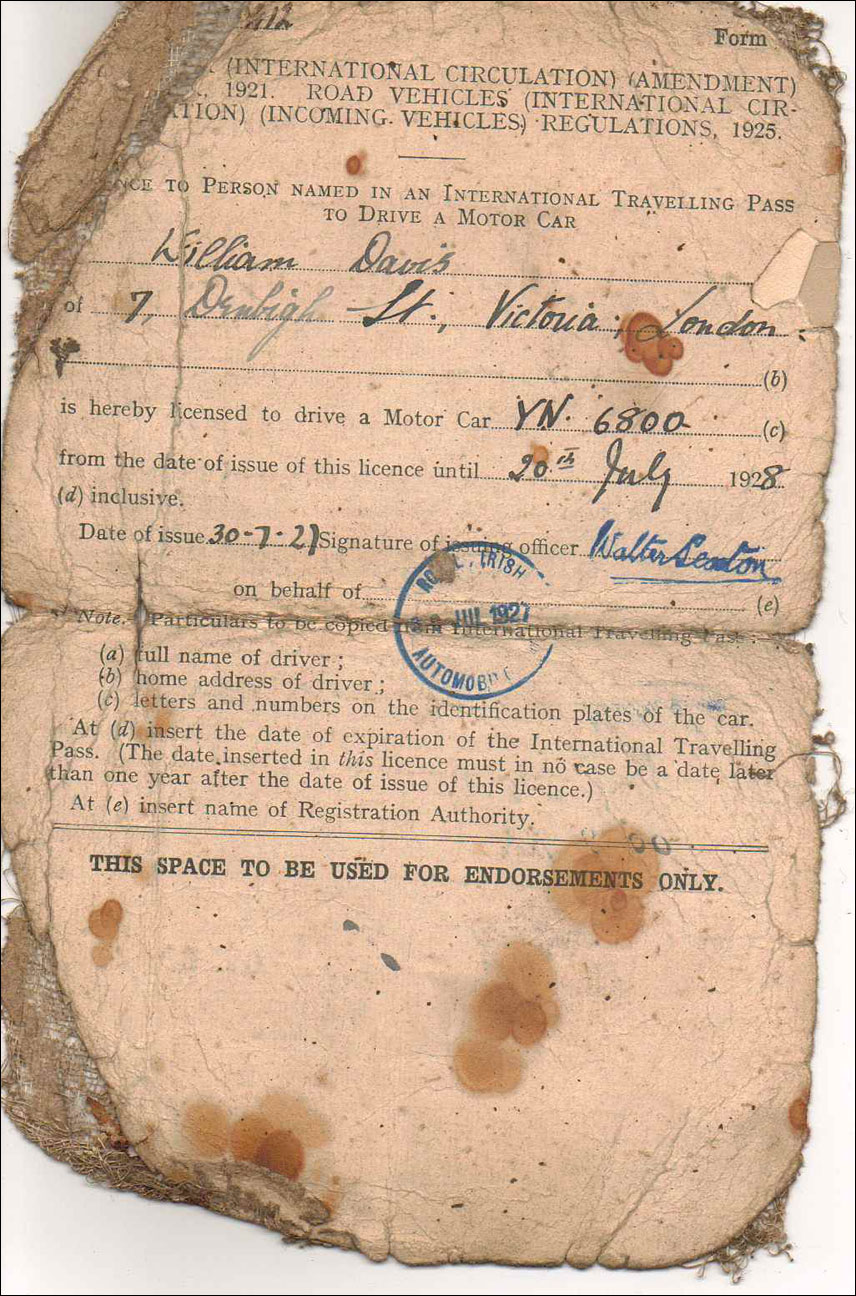 412
Form
(INTERNATIONAL CIRCULATION) (AMENDMENT)
1921. ROAD VEHICLES (INTERNATIONAL CIR-
ATION) (INCOMING VEHICLES) REGULATIONS, 1925.
NCE TO PERSON NAMED IN AN INTERNATIONAL TRAVELLING PASS
TO DRIVE A MOTOR CAR
William Davis
of 7, Denbigh St., Victoria, London.
(b)
is hereby licensed to drive a Motor Car YN. 6800 (c)
from the date of issue of this licence until 20th July 1928
(d) inclusive.
Date of issue 30-7-27 Signature of issuing officer Walter Sexton
on behalf of (e)
ROYAL IRISH
JUL 1927
AUTOMOBILE
Note. Particulars to be copied from International Travelling Pass:
(a) full name of driver;
(b) home address of driver;
(c) letters and numbers on the identification plates of the car.
At (d) insert the date of expiration of the International Travelling
Pass. (The date inserted in this licence must in no case be a date later
than one year after the date of issue of this licence.)
At (e) insert name of Registration Authority.
THIS SPACE TO BE USED FOR ENDORSEMENTS ONLY.